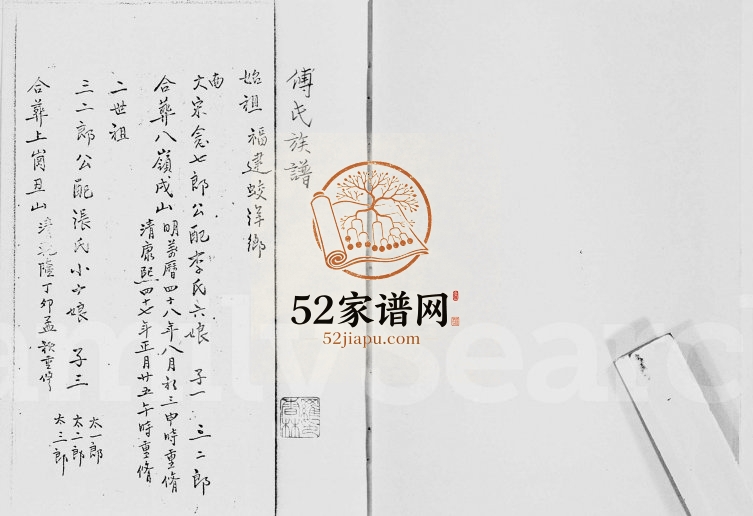 傅氏族譜
始祖 福建蛟洋鄉
南
大宗念七郎公配李氏六娘 子一 三二郎
合葬八嶺戌山 明萬曆四十八年八月初三申時重脩
清康熙四十七年正月廿五午時重脩
二世祖
三二郎公配張氏小少娘 子三 太一郎
太二郎
太三郎
合葬上崗丑山 清乾隆丁卯孟秋重脩
52家谱网
52jiapu.com
FamilySearch